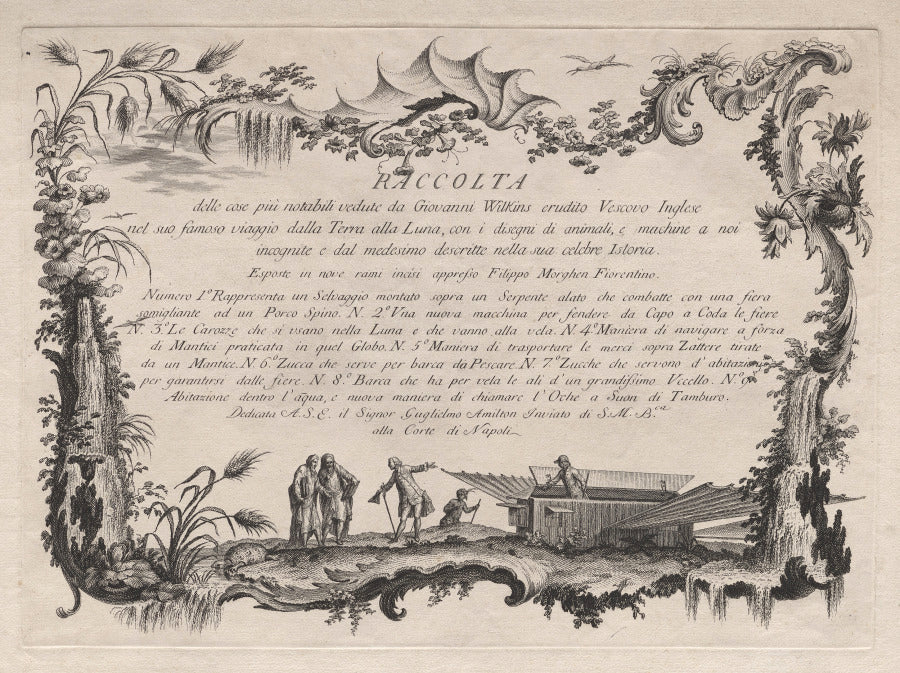 RACCOLTA
delle cose più notabili vedute da Giovanni Wilkins erudito Vescovo Inglese
nel suo famoso viaggio dalla Terra alla Luna, con i disegni di animali, e machine a noi
incognite e dal medesimo descritte nella sua celebre Istoria.
Esposte in nove rami incisi appresso Filippo Morghen Fiorentino.
Numero 1º Rappresenta un Selvaggio montato sopra un Serpente alato che combatte con una fiera
somigliante ad un Porco Spino. N. 2º Vna nuova macchina per fendere da Capo a Coda le fiere
N. 3º Le Carozze che si vsano nella Luna e che vanno alla vela. N. 4º Maniera di navigare a forza
di Mantici praticata in quel Globo. N. 5º Maniera di trasportare le merci sopra Zattere tirate
da un Mantice. N. 6º Zucca che serve per barca da Pescare. N. 7º Zucche che servono d' abitazion
per garantirsi dalle fiere. N. 8º Barca che ha per vela le ali d' un grandissimo Vccello. Nº 9º
Abitazione dentro l' acqua, e nuova maniera di chiamare l' Oche a Suon di Tamburo.
Dedicata A. S. E. il Signor Guglielmo Amilton Inviato di S. M. B.ca
alla Corte di Napoli